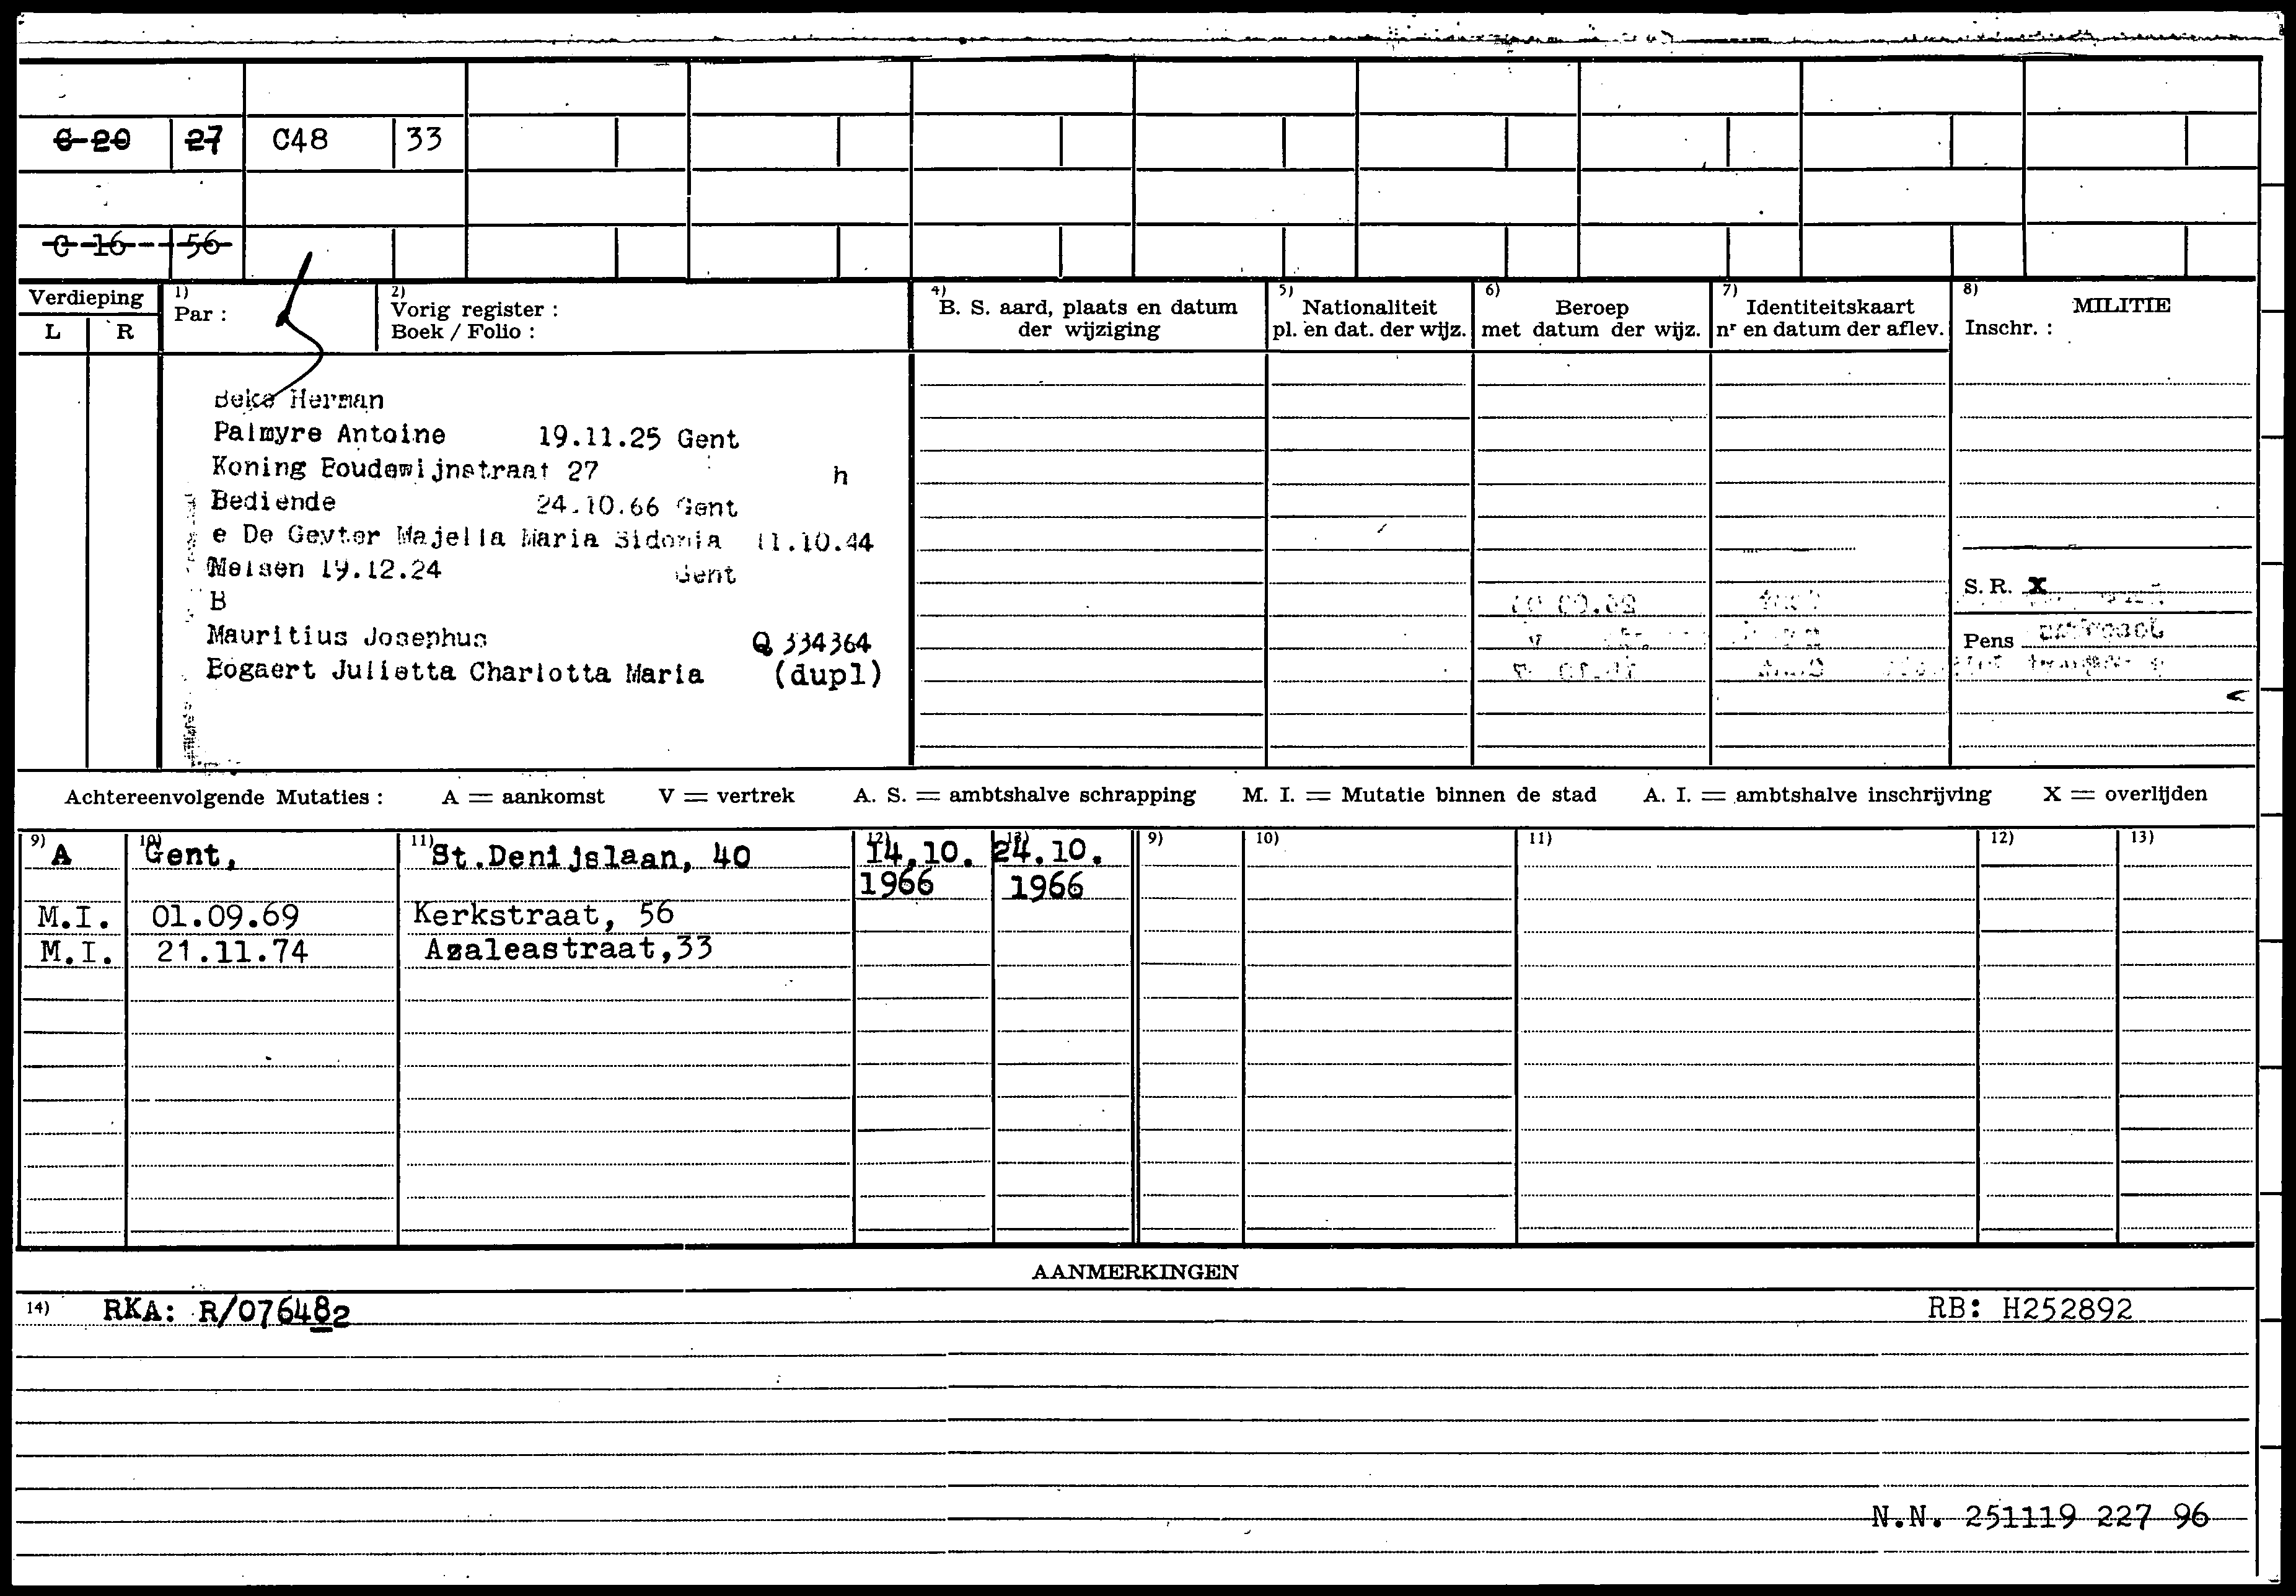 C 20 27 C48 33
C 16 56
Verdieping
L R
1) Par :
2) Vorig register :
Boek / Folio :
4) B. S. aard, plaats en datum
der wijziging
5) Nationaliteit
pl. en dat. der wijz.
6) Beroep
met datum der wijz.
7) Identiteitskaart
nr en datum der aflev.
8) MILITIE
Inschr. :
Beke Herman
Palmyre Antoine 19.11.25 Gent
Koning Boudewijnstraat 27 h
Bediende 24.10.66 Gent
e De Geyter Majella Maria Sidonia 11.10.44
Melsen 19.12.24 Gent
B
Mauritius Josephus Q 334364
Bogaert Julietta Charlotta Maria (dupl)
S. R. X
Pens
Achtereenvolgende Mutaties : A = aankomst V = vertrek A. S. = ambtshalve schrapping M. I. = Mutatie binnen de stad A. I. = ambtshalve inschrijving X = overlijden
9) 10) 11) 12) 13) 9) 10) 11) 12) 13)
A Gent, St.Denijslaan, 40 14.10. 24.10.
1966 1966
M.I. 01.09.69 Kerkstraat, 56
M.I. 21.11.74 Azaleastraat,33
AANMERKINGEN
14) RKA: R/076482 RB: H252892
N.N. 251119 227 96